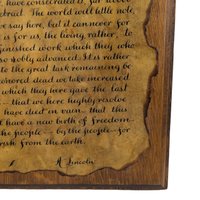 have consecrated it, far above
detract. The world will little note,
we say here, but it can never for
is for us, the living, rather, to
unfinished work which they who
so nobly advanced. It is rather
to the great task remaining be
honored dead we take increased
which they here gave the last
that we here highly resolve
have died in vain - that this
have a new birth of freedom
the people - by the people - for
perish from the earth.
A. Lincoln